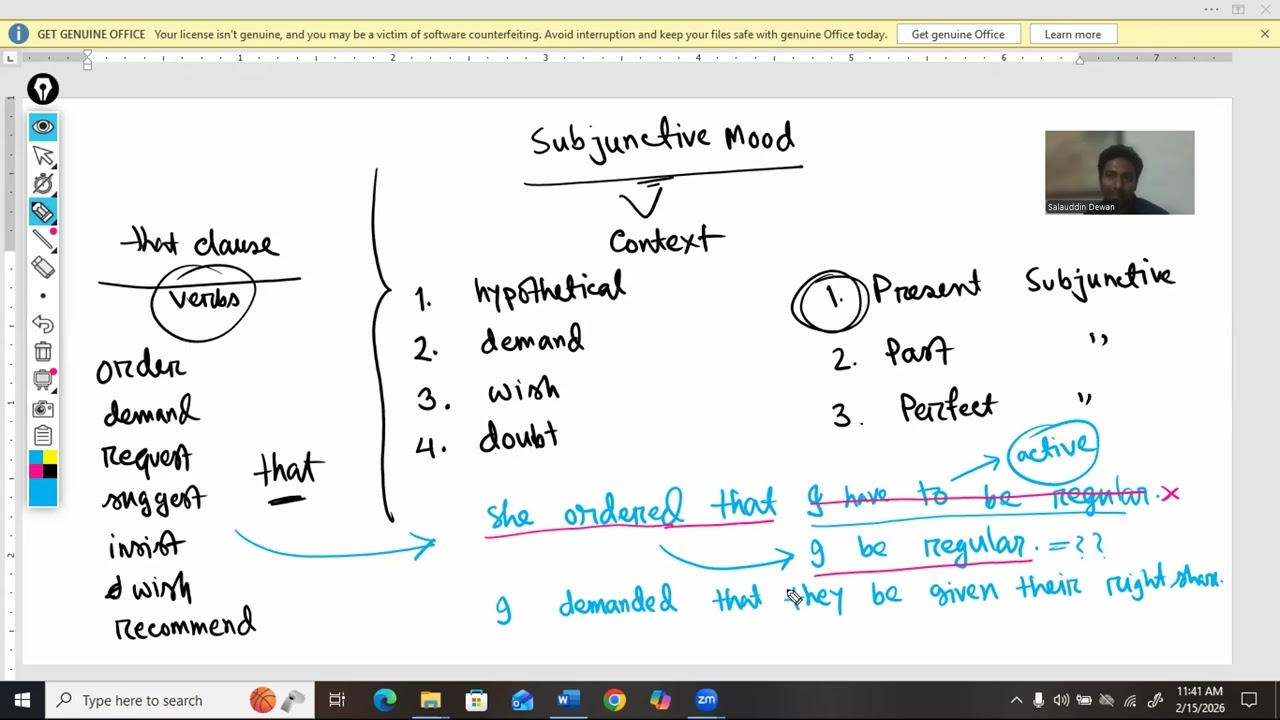 GET GENUINE OFFICE Your license isn't genuine, and you may be a victim of software counterfeiting. Avoid interruption and keep your files safe with genuine Office today. Get genuine Office Learn more
1 2 3 4 5 6 7
Subjunctive Mood
Context
Salauddin Dewan
that clause
verbs
order
demand
request
suggest
insist
wish
recommend
that
1. hypothetical
2. demand
3. wish
4. doubt
1. Present Subjunctive
2. Past "
3. Perfect "
active
she ordered that I have to be regular. x
I be regular. = ??
I demanded that they be given their right share.
Type here to search
11:41 AM
2/15/2026